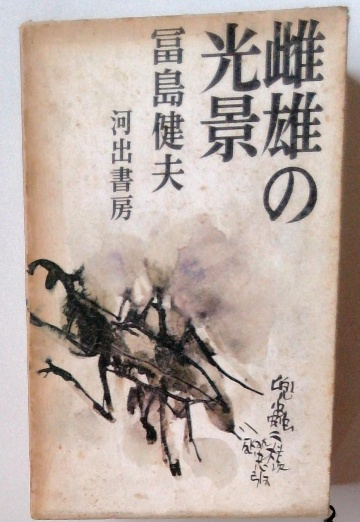 雌雄の
光景
冨島健夫
河出書房